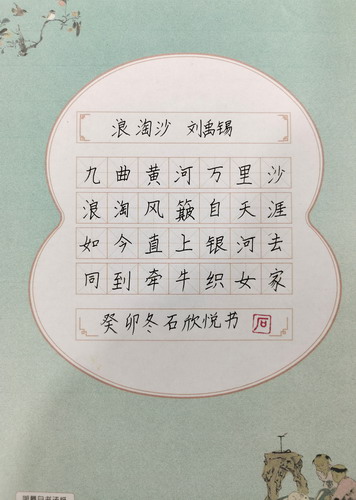 浪淘沙 刘禹锡
九曲黄河万里沙
浪淘风簸自天涯
如今直上银河去
同到牵牛织女家
癸卯冬石欣悦书 石